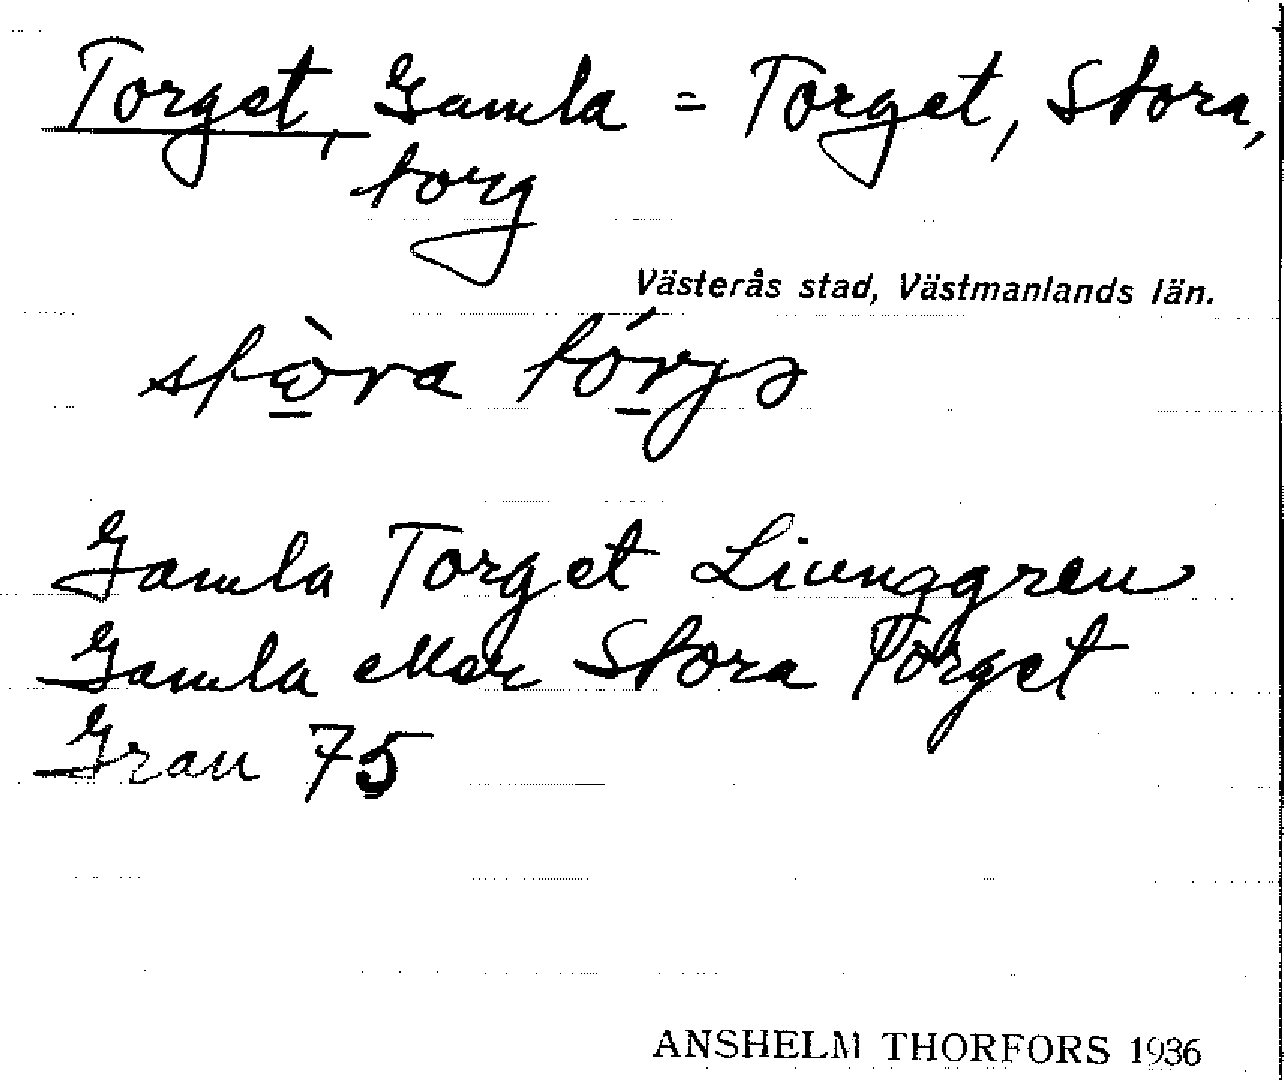 Torget, Gamla = Torget, Stora,
torg
Västerås stad, Västmanlands län.
stòra tórjə
Gamla Torget Liunggren
Gamla eller Stora Torget
Grau 75
ANSHELM THORFORS 1936